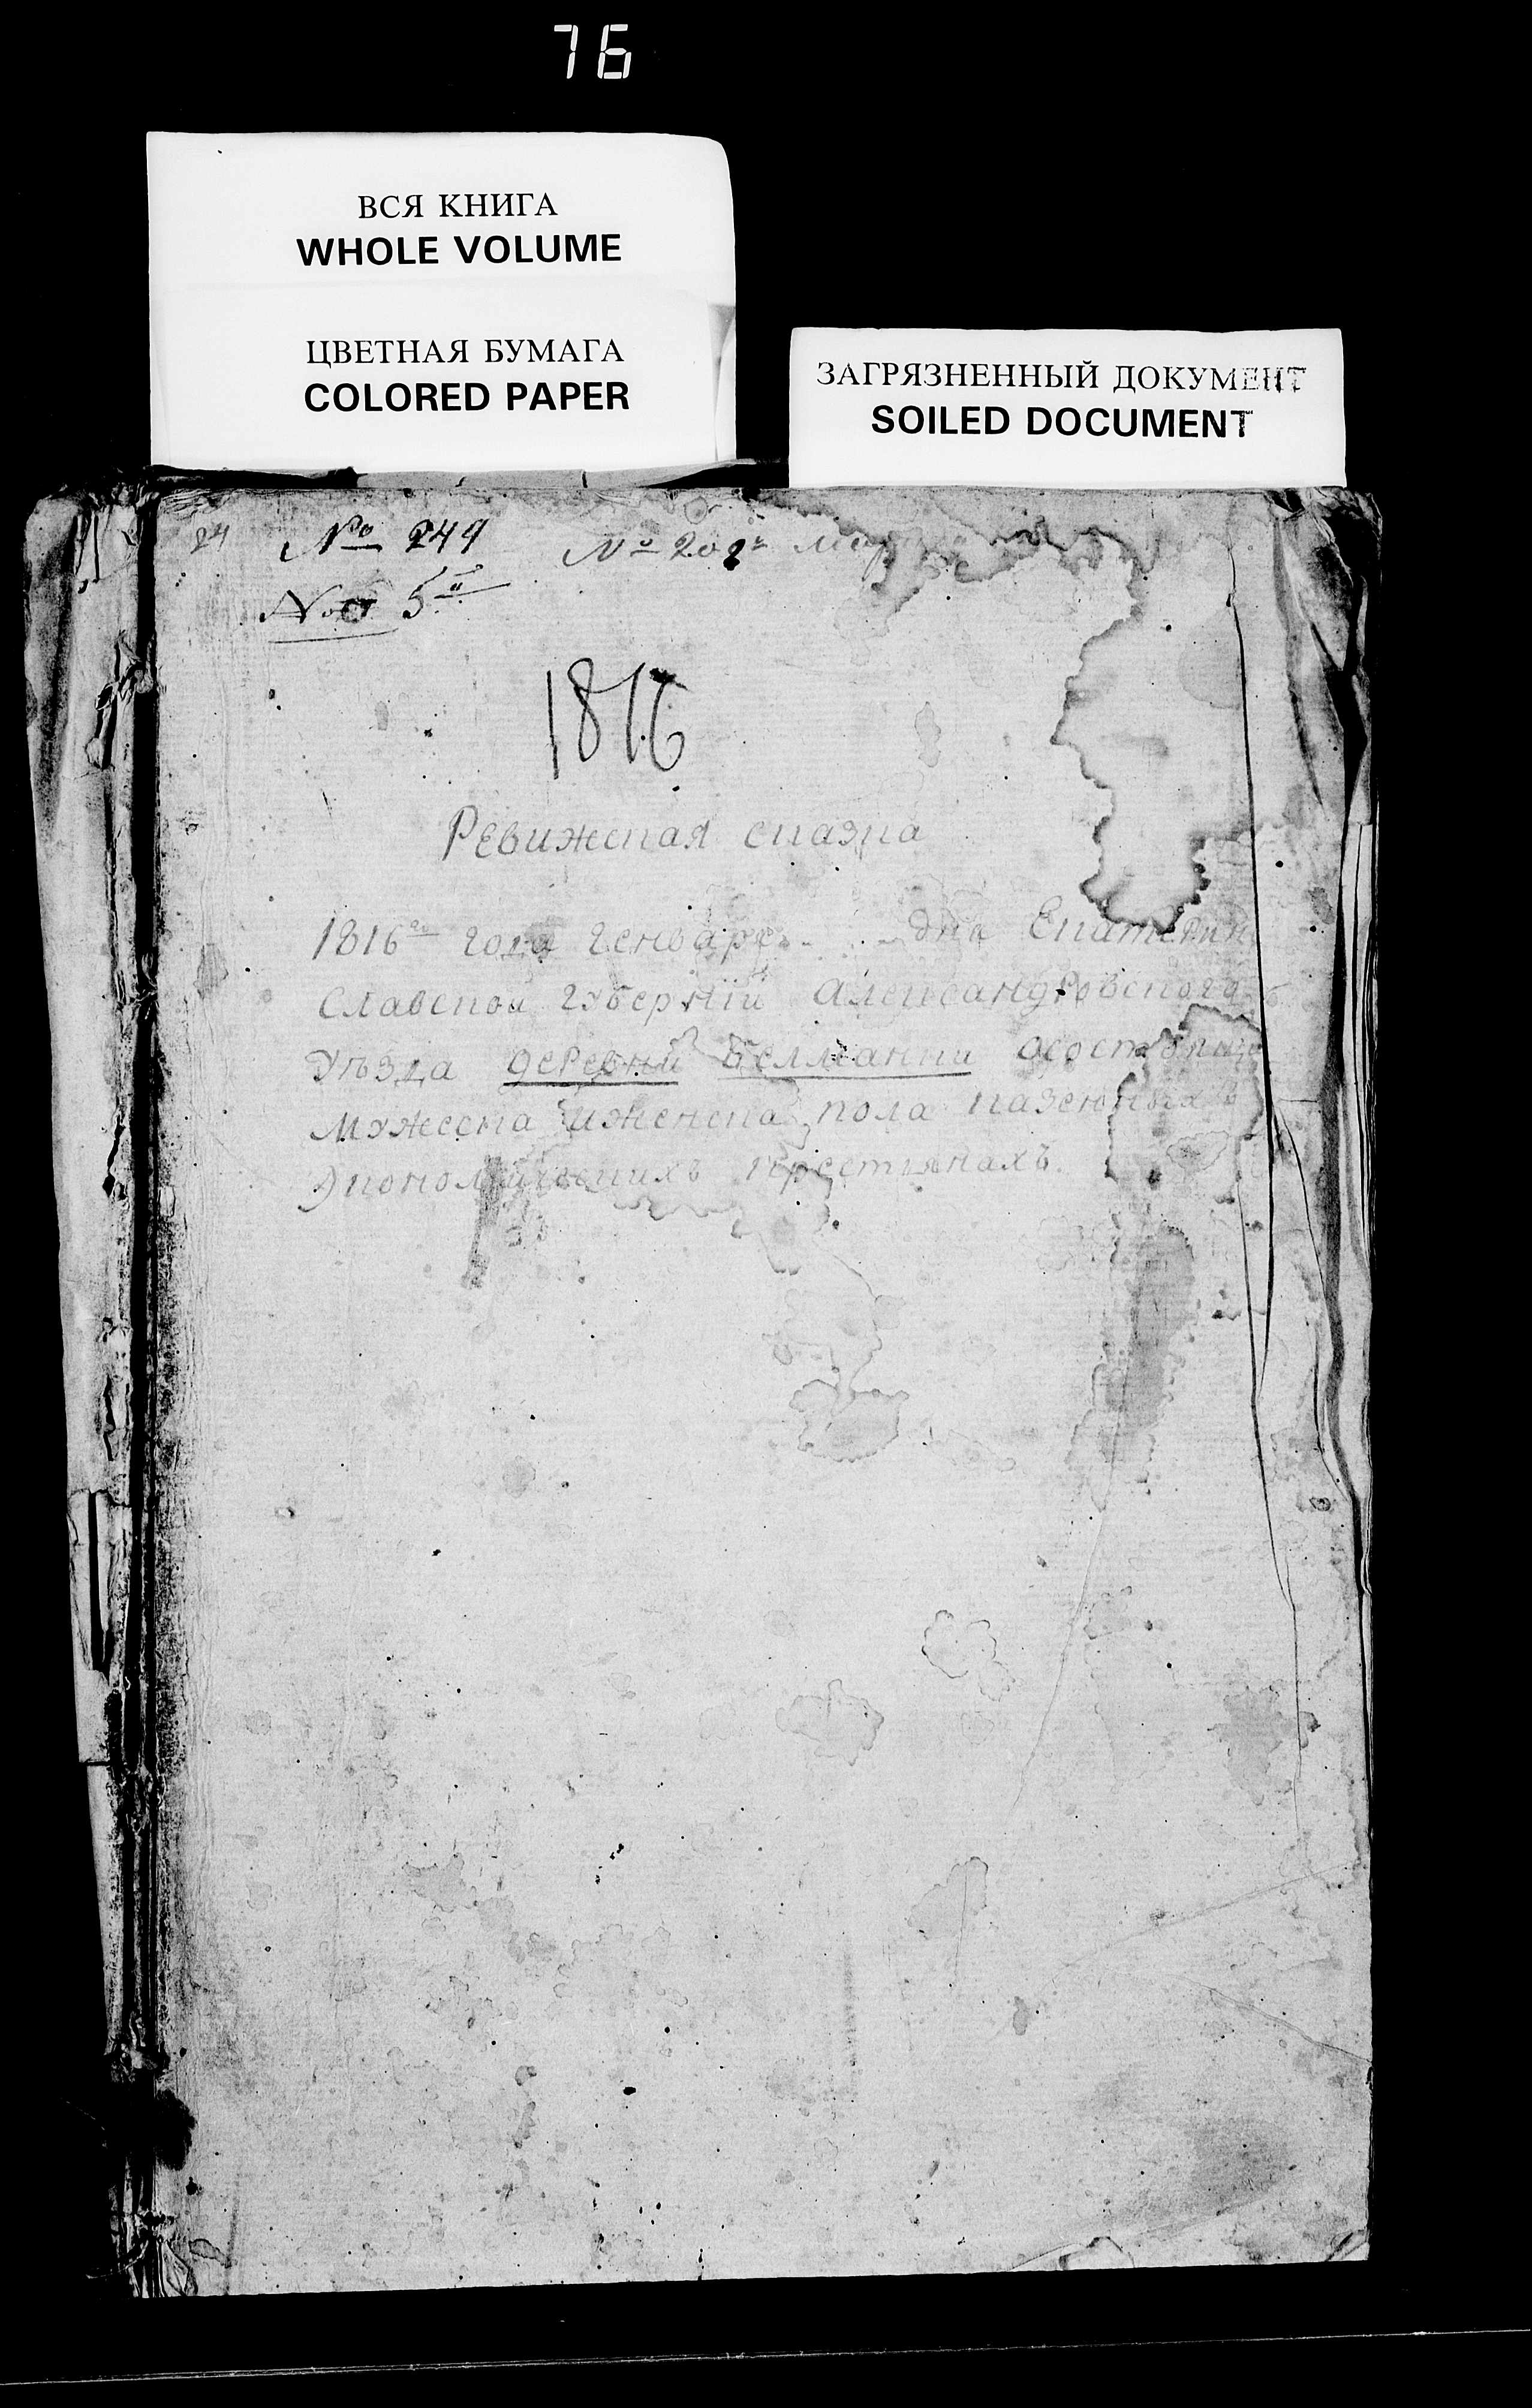 76
ВСЯ КНИГА
WHOLE VOLUME
ЦВЕТНАЯ БУМАГА
COLORED PAPER
ЗАГРЯЗНЕННЫЙ ДОКУМЕНТ
SOILED DOCUMENT
24 № 249 № 202
№ 5
1816
Ревижская сказка
1816го года генваря дня Екатерин
славской губерніи Александровскаго
уѣзда деревни Белманки осостоящихъ
мужеска иженска пола казенныхъ
Экономическихъ крестянахъ.